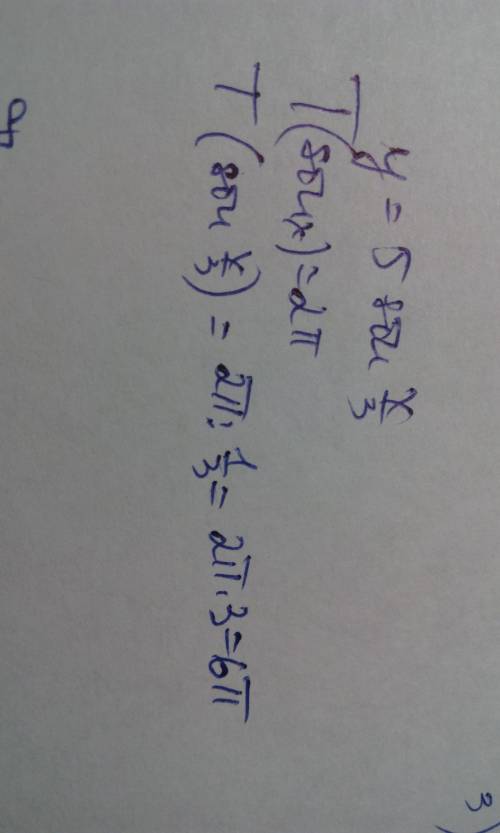 3)
y = 5 sin x/3
T(sin x) = 2π
T (sin x/3) = 2π : 1/3 = 2π · 3 = 6π